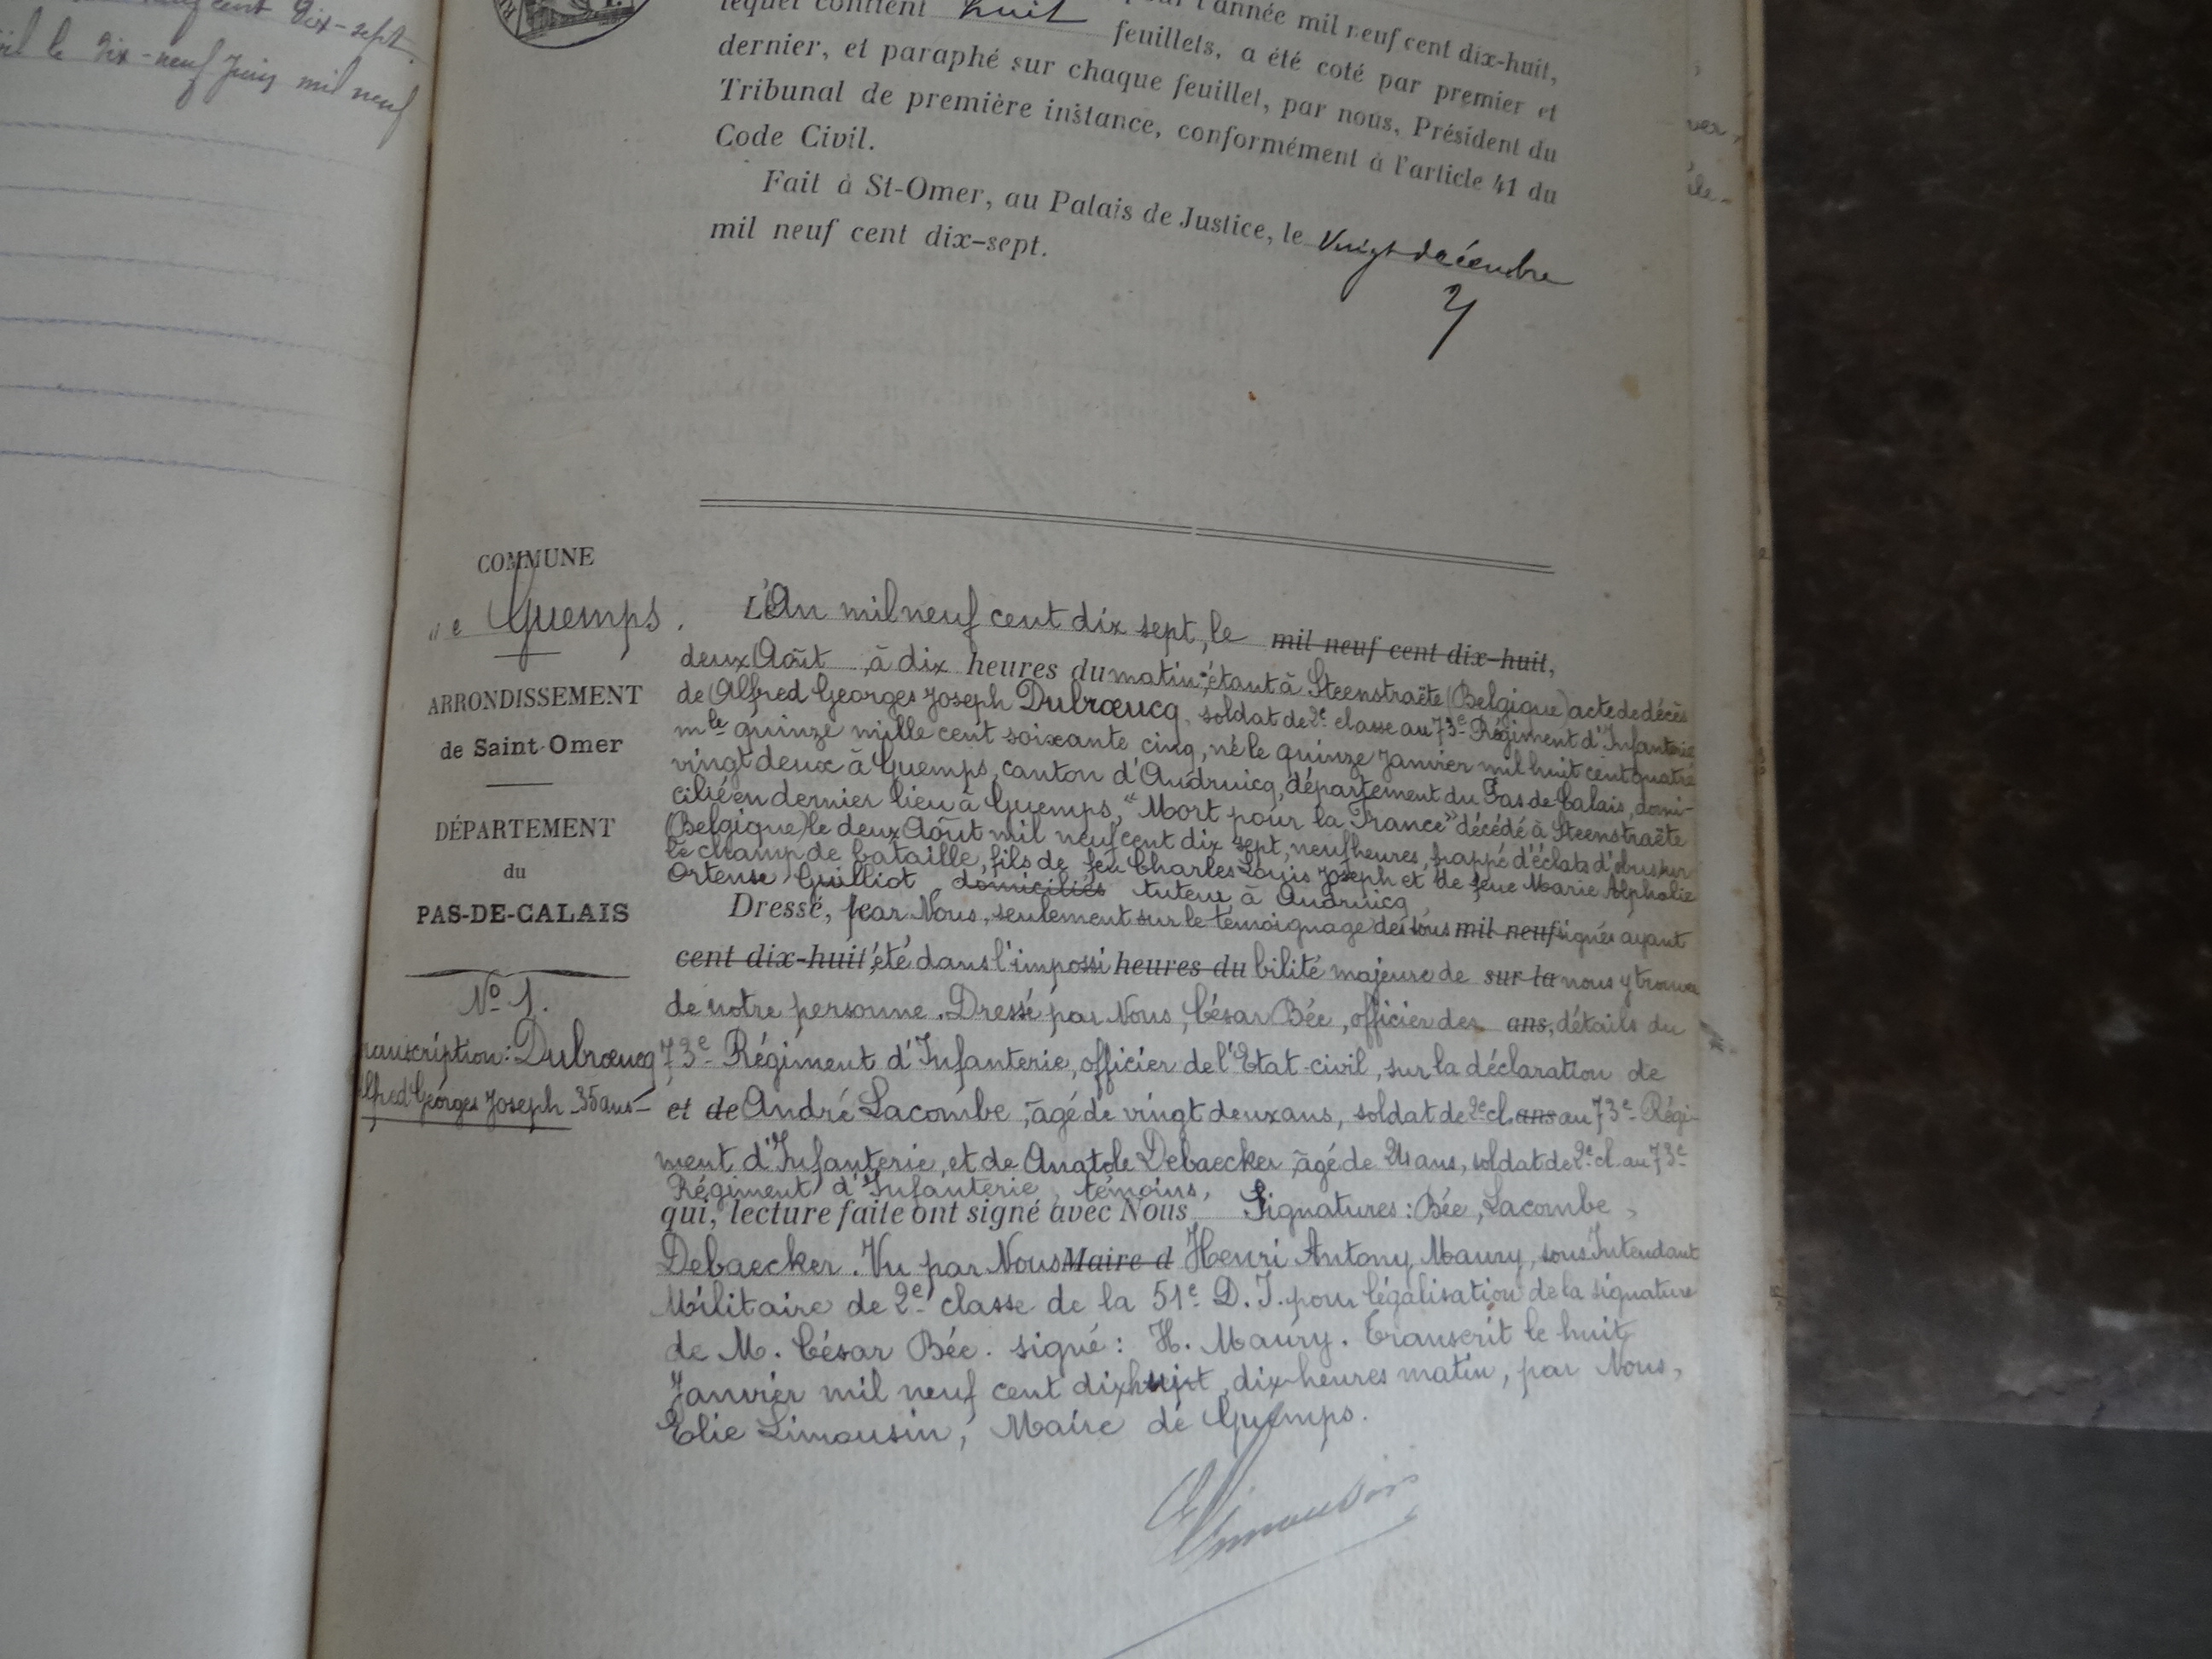 cent Dix-sept
le Dix-neuf Juin mil neuf
l'année mil neuf cent dix-huit,
lequel contient huit feuillets, a été coté par premier et
dernier, et paraphé sur chaque feuillet, par nous, Président du
Tribunal de première instance, conformément à l'article 41 du
Code Civil.
Fait à St-Omer, au Palais de Justice, le Vingt décembre
mil neuf cent dix-sept.
COMMUNE
de Guemps.
ARRONDISSEMENT
de Saint-Omer
DÉPARTEMENT
du
PAS-DE-CALAIS
No 1.
ranscription: Dubrœucq
lfred Georges Joseph 35 ans
L'An mil neuf cent dix sept, le mil neuf cent dix-huit,
deux Août, à dix heures du matin, étant à Steenstraëte (Belgique) acte de décès
de Alfred Georges Joseph Dubrœucq, soldat de 2e classe au 73e Régiment d'Infanterie
mle quinze mille cent soixante cinq, né le quinze Janvier mil huit cent quatre
vingt deux à Guemps, canton d'Audruicq, département du Pas-de-Calais, domi-
cilié en dernier lieu à Guemps, "Mort pour la France" décédé à Steenstraëte
(Belgique) le deux Août mil neuf cent dix sept, neuf heures, frappé d'éclats d'obus sur
le champ de bataille, fils de feu Charles Louis Joseph et de feue Marie Alphalie
Ortense Guilliot, domiciliés tuteur à Audruicq
Dressé, par Nous, seulement sur le témoignage des sous mil neuf signés ayant
cent dix-huit été dans l'impossi heures du bilité majeure de sur la nous y trouver
de notre personne. Dressé par Nous, César Bée, officier des ans, détails du
73e Régiment d'Infanterie, officier de l'Etat-civil, sur la déclaration de
et de André Lacombe, âgé de vingt deux ans, soldat de 2e cl. ans au 73e Régi-
ment d'Infanterie, et de Anatole Debaecker, âgé de 24 ans, soldat de 2e cl. au 73e
Régiment d'Infanterie, témoins,
qui, lecture faite ont signé avec Nous Signatures: Bée, Lacombe,
Debaecker. Vu par Nous Maire d Henri Antony Maury, sous Intendant
Militaire de 2e classe de la 51e D.I. pour légalisation de la signature
de M. César Bée. signé: H. Maury. Transcrit le huit
Janvier mil neuf cent dix huit, dix heures matin, par Nous,
Elie Limousin, Maire de Guemps.
Limousin